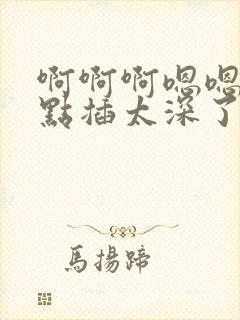 啊啊啊嗯嗯
點插太深了
馬揚蹄